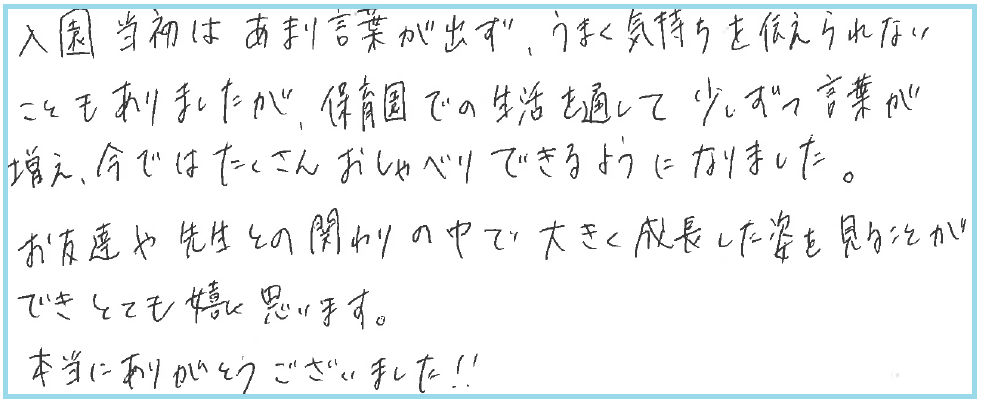 入園当初はあまり言葉が出ず、うまく気持ちを伝えられない
こともありましたが、保育園での生活を通して少しずつ言葉が
増え、今ではたくさんおしゃべりできるようになりました。
お友達や先生との関わりの中で大きく成長した姿を見ることが
できとても嬉しく思います。
本当にありがとうございました!!